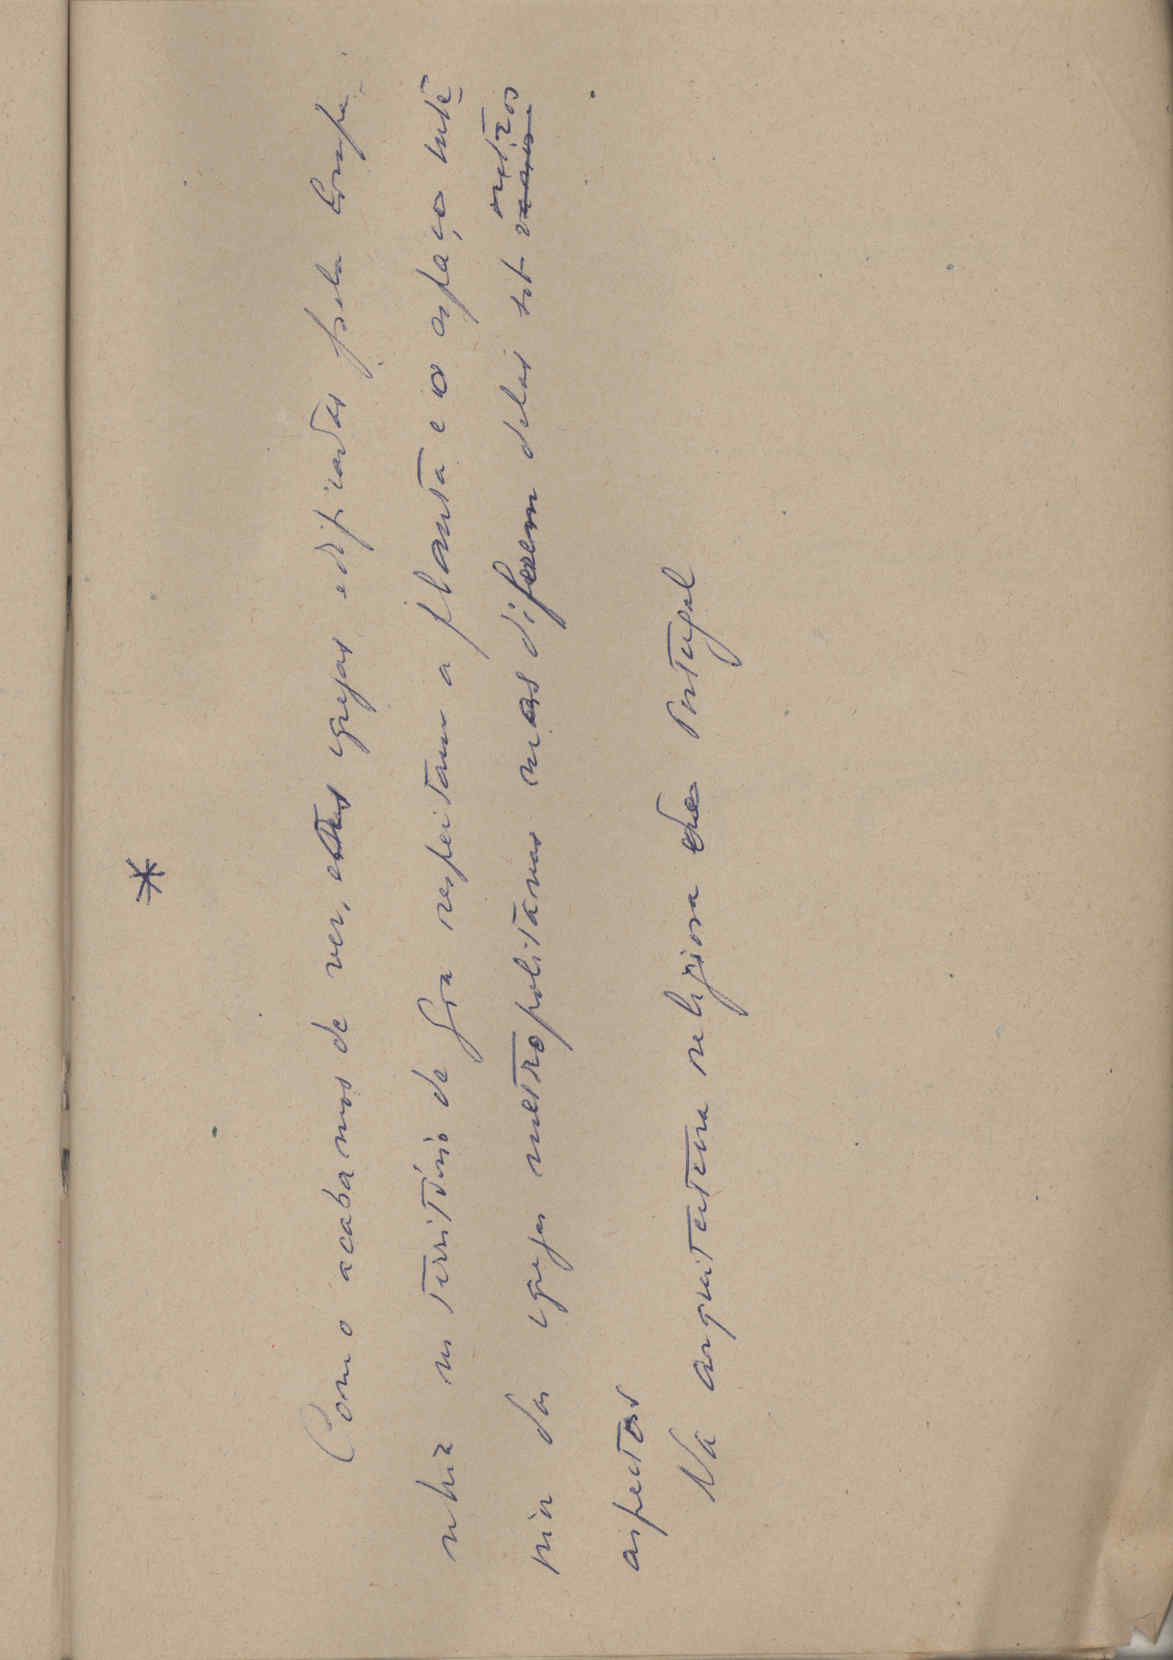 *
Como acabamos de ver, estas igrejas edificadas pela Compa-
nhia no território de Goa respeitam a planta e o espaço inté-
rio das igrejas metropolitanas mas diferem delas sob outros
aspectos
Na arquitectura religiosa de Portugal